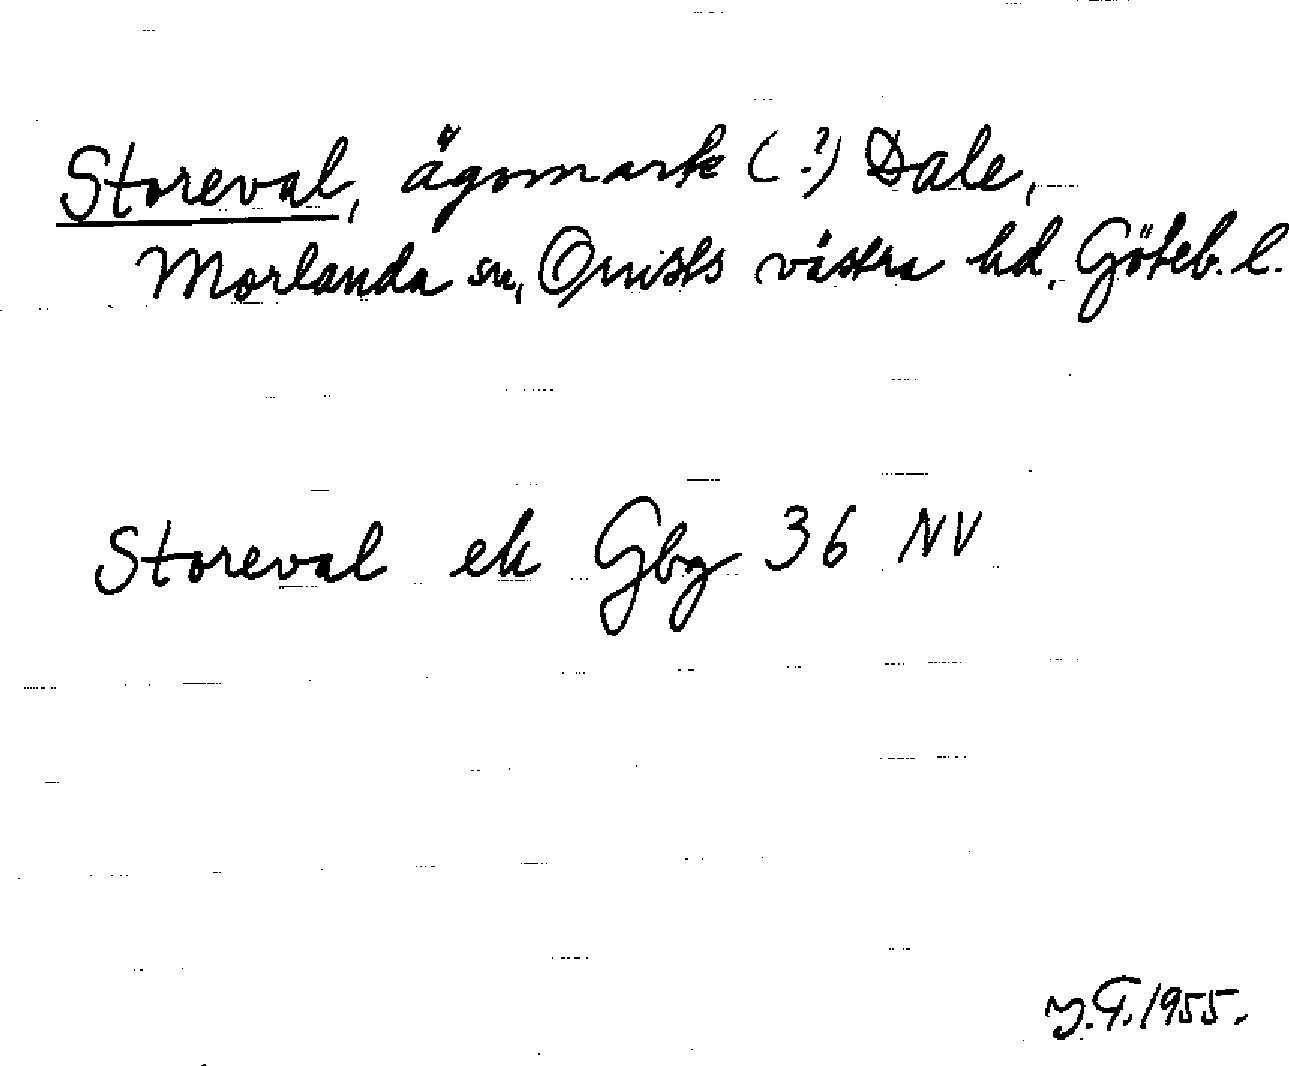 Storeval, ägomark (?) Dale,
Morlanda sn, Orusts västra hd, Göteb. l.
Storeval ek Gbg 36 NV
1955.